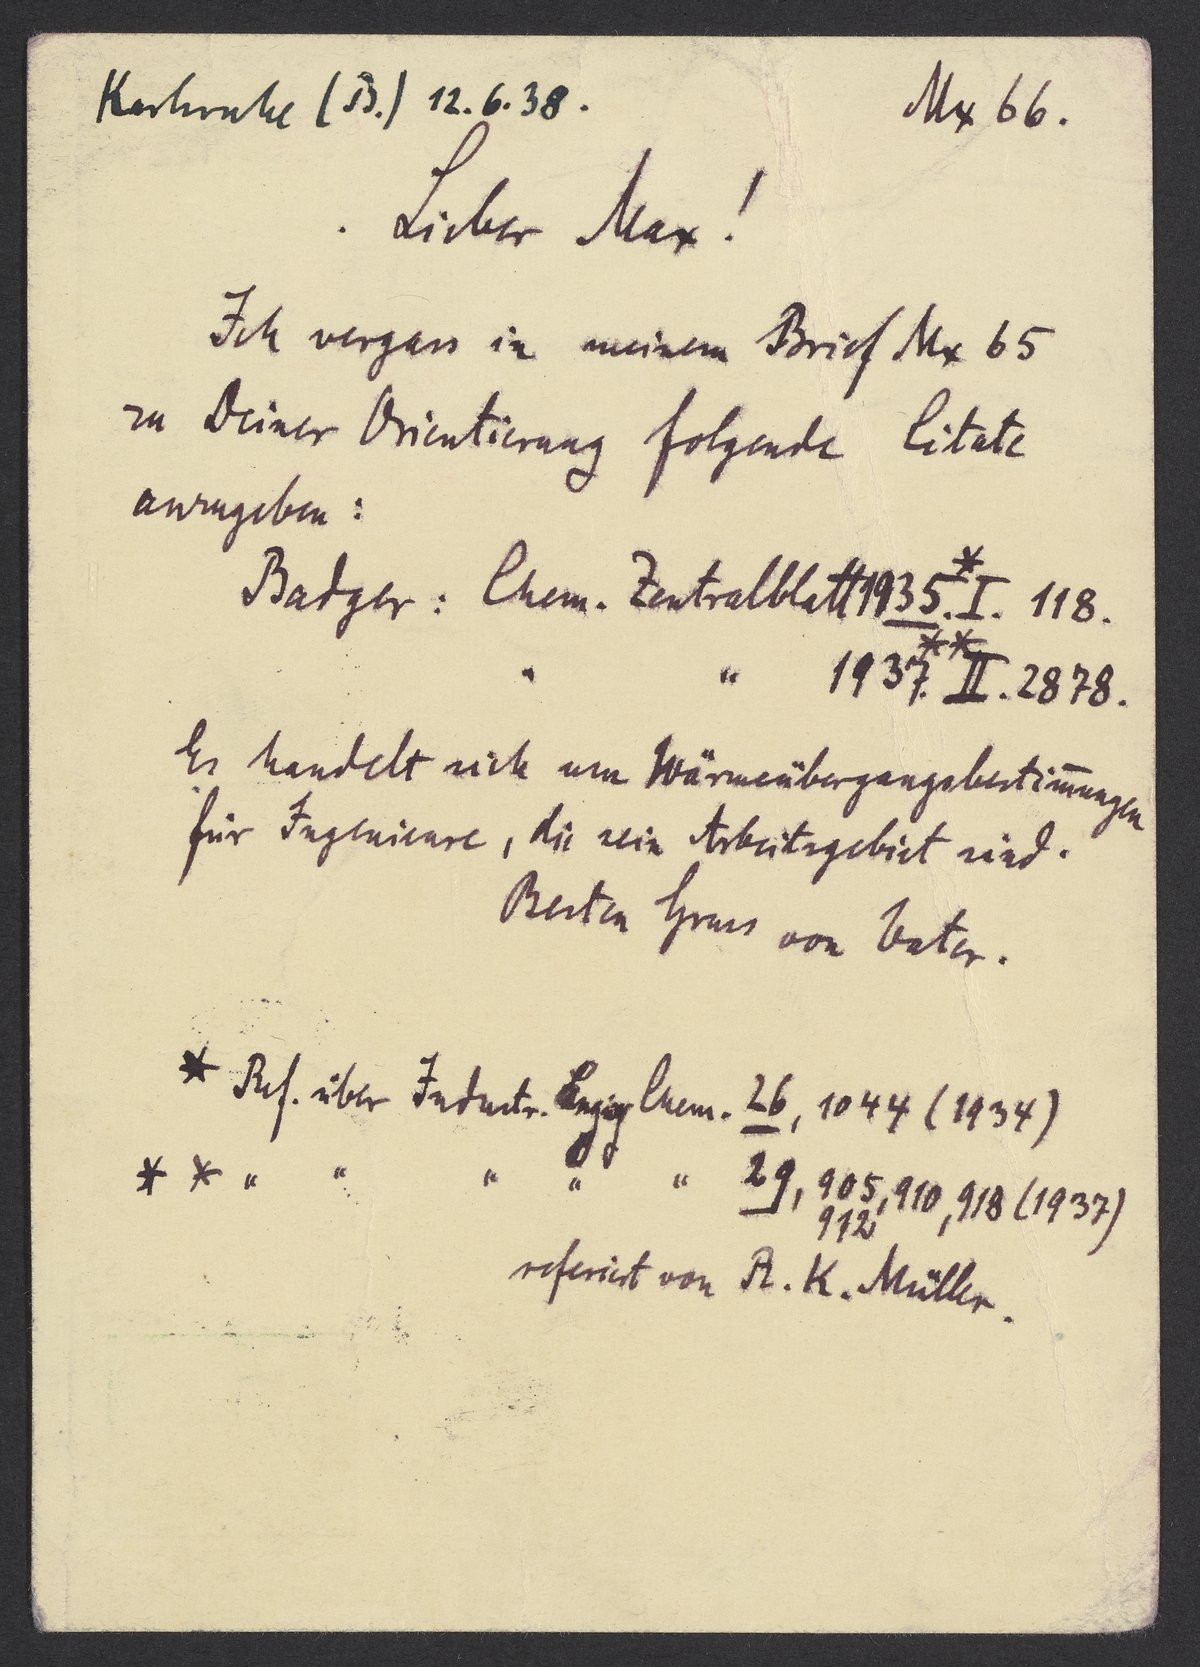 Karlsruhe (B.) 12.6.38. Mx 66.
Lieber Max!
Ich vergass in meinem Brief Mx 65
zu Deiner Orientierung folgende Citate
anzugeben:
Badger: Chem. Zentralblatt 1935.* I. 118.
" " 1937.** II. 2878.
Es handelt sich um Wärmeübergangsbestim̅ungen
für Ingenieure, die sein Arbeitsgebiet sind.
Besten Gruss von Vater.
* Ref. über Industr. Engig Chem. 26, 1044 (1934)
** " " " " " 29, 905, 910, 918 (1937)
912
referiert von R. K. Müller.